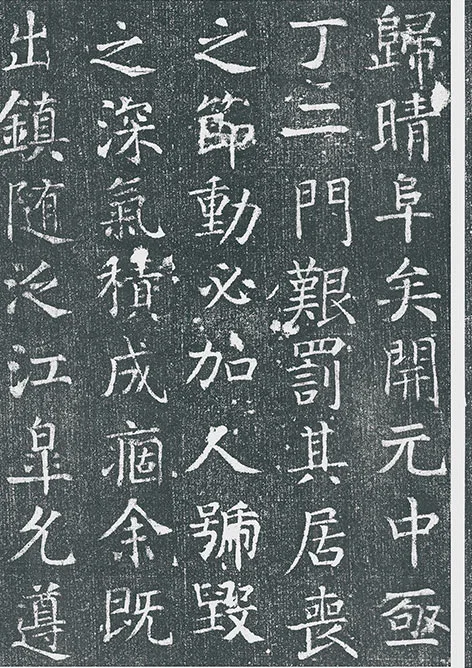 歸晴阜矣開元中亟
丁二門艱罰其居喪
之節動必加人號毀
之深氣積成痼余既
出鎮随泛江皐允遵